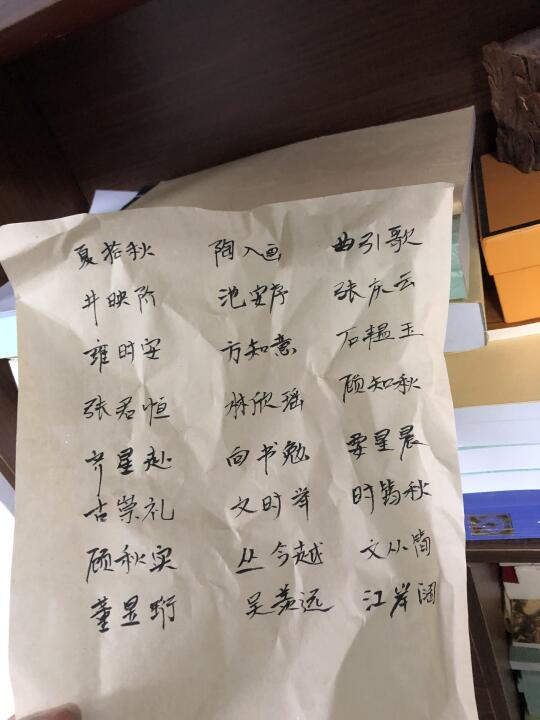 夏若秋 陶入画 曲引歌
井映阶 池安序 张庆云
雍时安 方知意 石韫玉
张君恒 林欣瑶 顾知秋
齐星赴 向书勉 晏星晨
古崇礼 文时举 时筠秋
顾秋实 丛今越 文从简
董昱珩 吴羡远 江岸阔